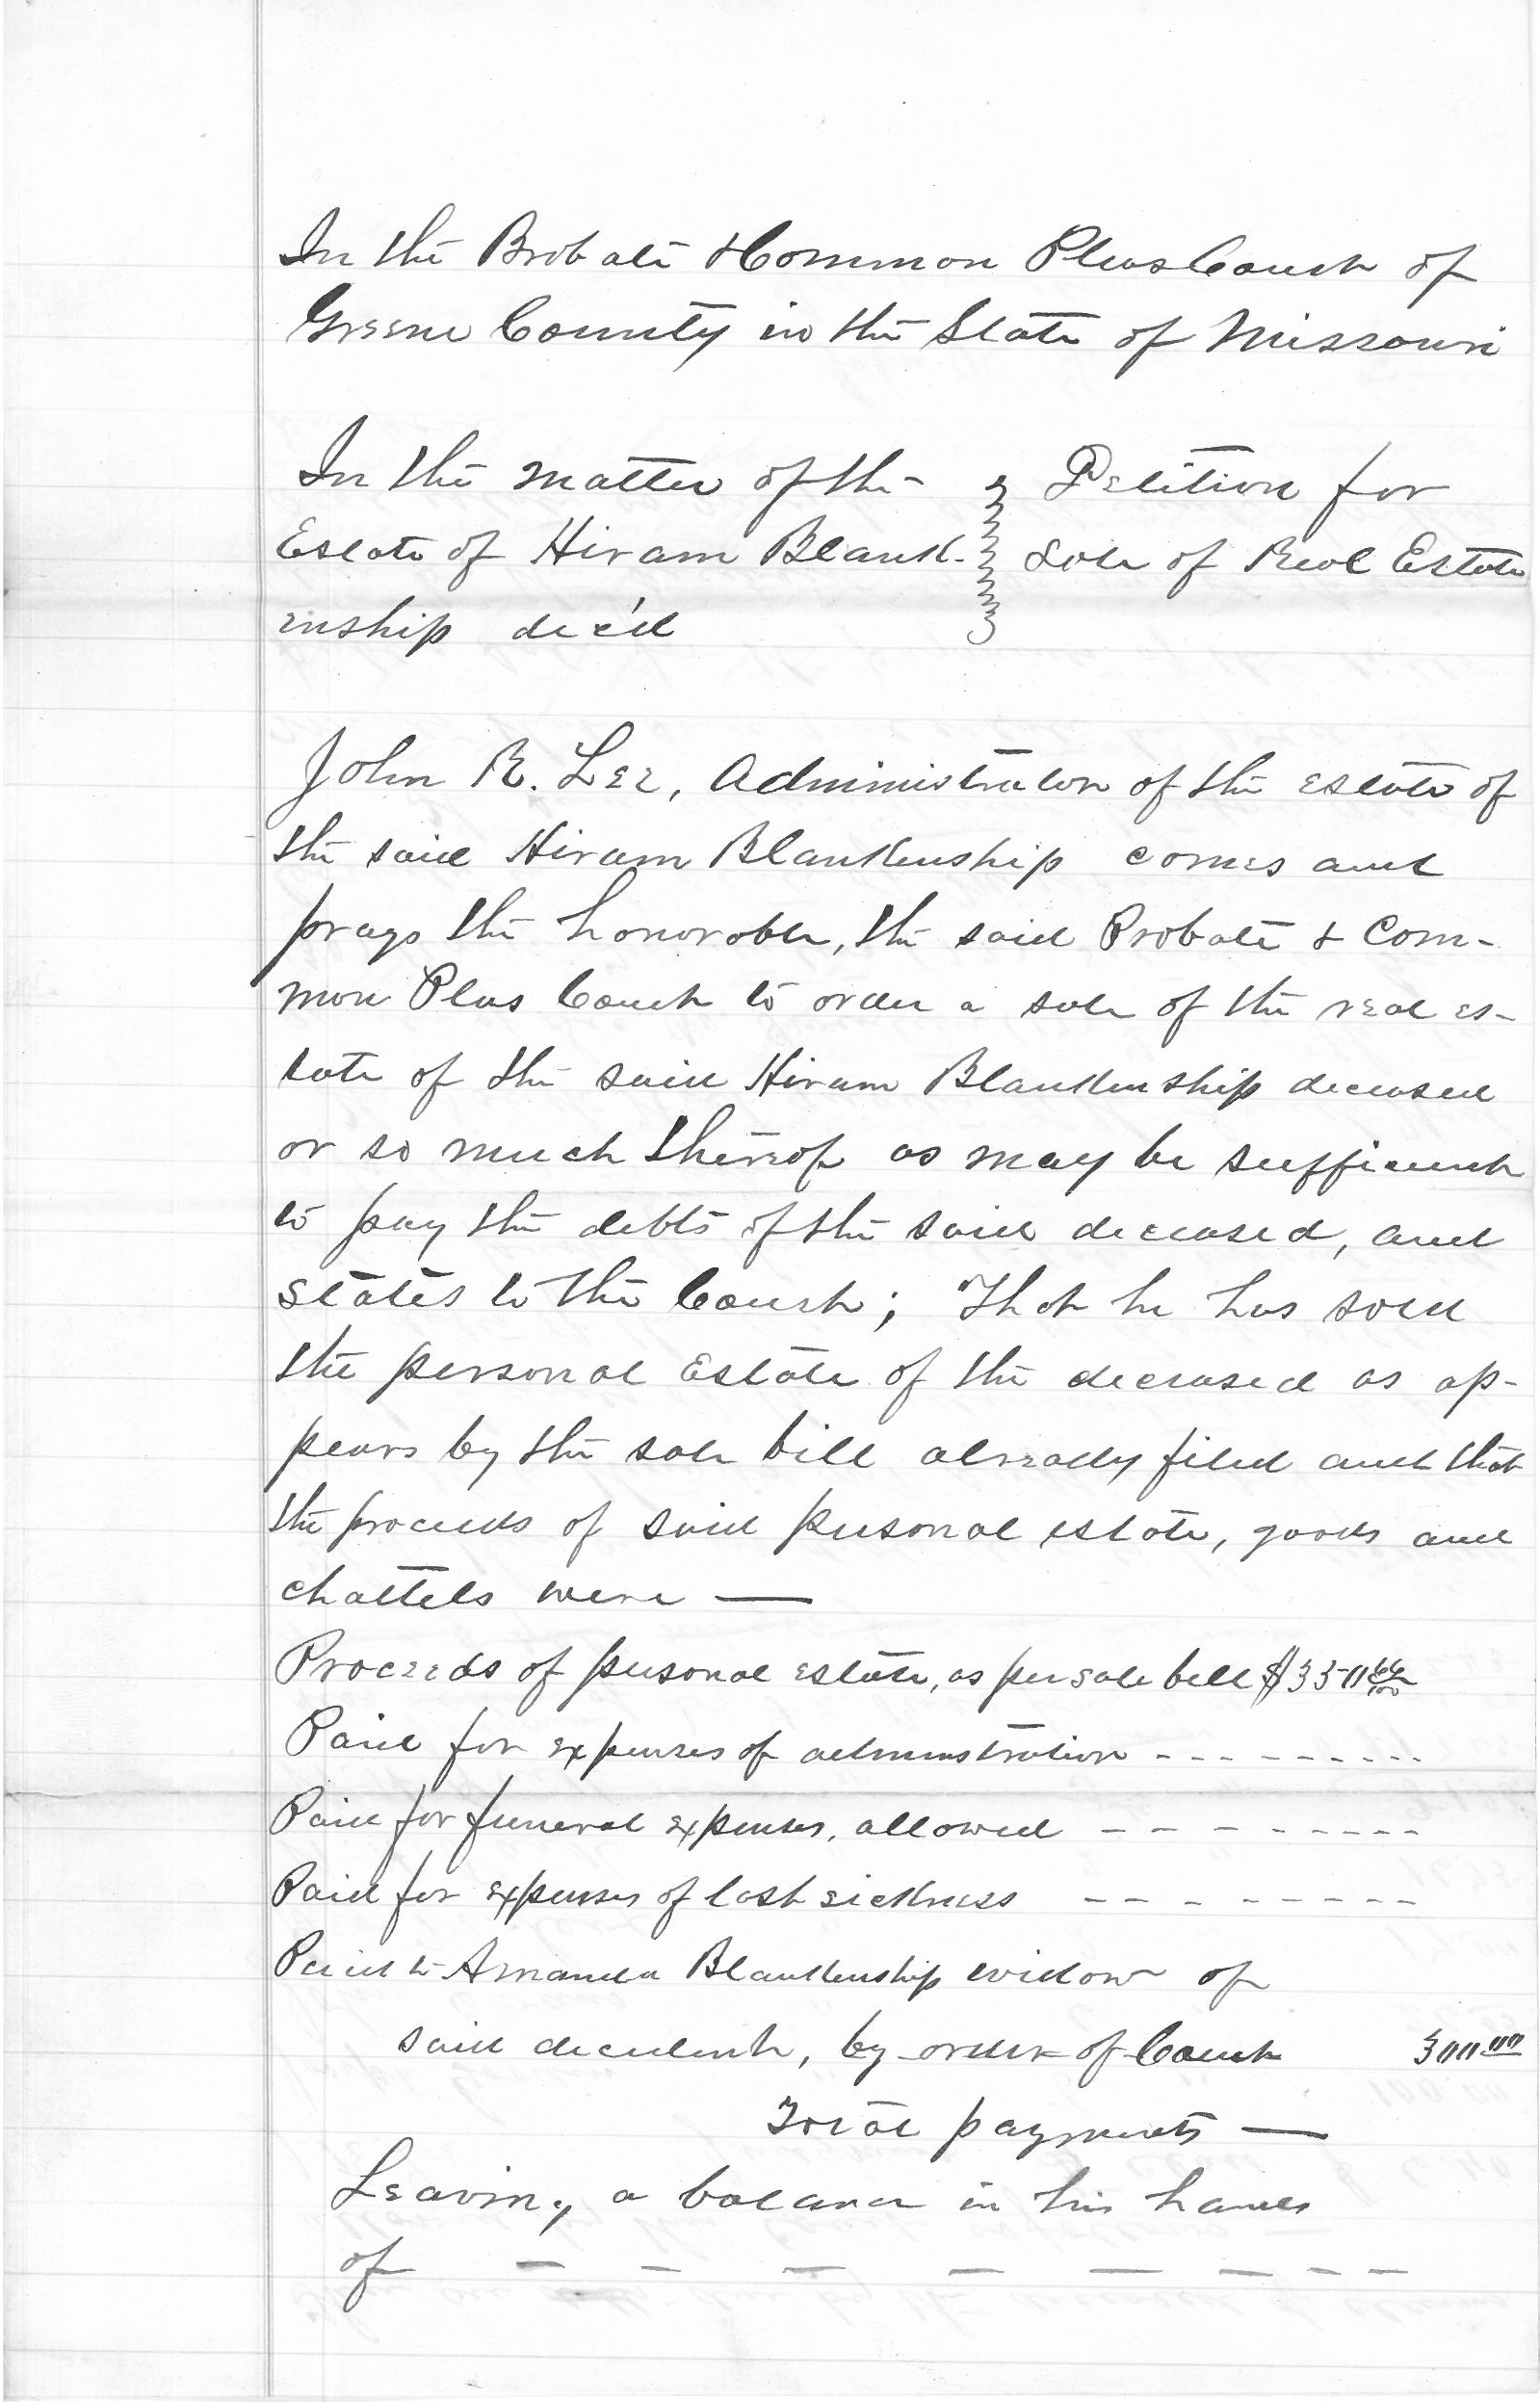 In the Probate & Common Pleas Court of
Greene County in the State of Missouri
In the matter of the
Estate of Hiram Blank-
enship dec'd
Petition for
Sale of Real Estate
John R. Lee, Administrator of the estate of
the said Hiram Blankenship comes and
prays the honorable, the said Probate & Com-
mon Pleas Court to order a sale of the real es-
tate of the said Hiram Blankenship deceased
or so much thereof as may be sufficient
to pay the debts of the said deceased, and
states to the Court; That he has sold
the personal Estate of the deceased as ap-
pears by the sale bill already filed and that
the proceeds of said personal estate, goods and
chattels were —
Proceeds of personal estate, as per sale bill
Paid for expenses of administration - - - - - - - - -
Paid for funeral expenses, allowed - - - - - - - - -
Paid for expenses of last sickness - - - - - - - - -
Paid to Amanda Blankenship widow of
said decedent, by order of Court 300.00
Total payments —
Leaving a balance in his hands
of - - - - - - - -